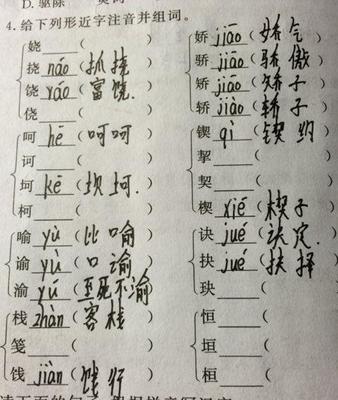 D. 驱除
4. 给下列形近字注音并组词。
娆____(        )
挠 náo (抓挠)
饶 ráo (富饶.)
侥____(        )
呵 hē (呵呵)
诃____(        )
坷 kē (坝坷.)
柯____(        )
喻 yù (比喻)
谕 yù (口谕)
渝 yú (至死不渝)
栈 zhàn (客栈)
笺____(        )
饯 jiàn (饯行)
娇 jiāo (娇气)
骄 jiāo (骄傲)
矫 jiāo (矫子)
轿 jiào (轿子)
锲 qì (锲约)
挈____(
契____(
楔 xiē (楔子)
诀 jué (诀定.
抉 jué (抉择)
玦____(
恒____(
垣____(
桓____(